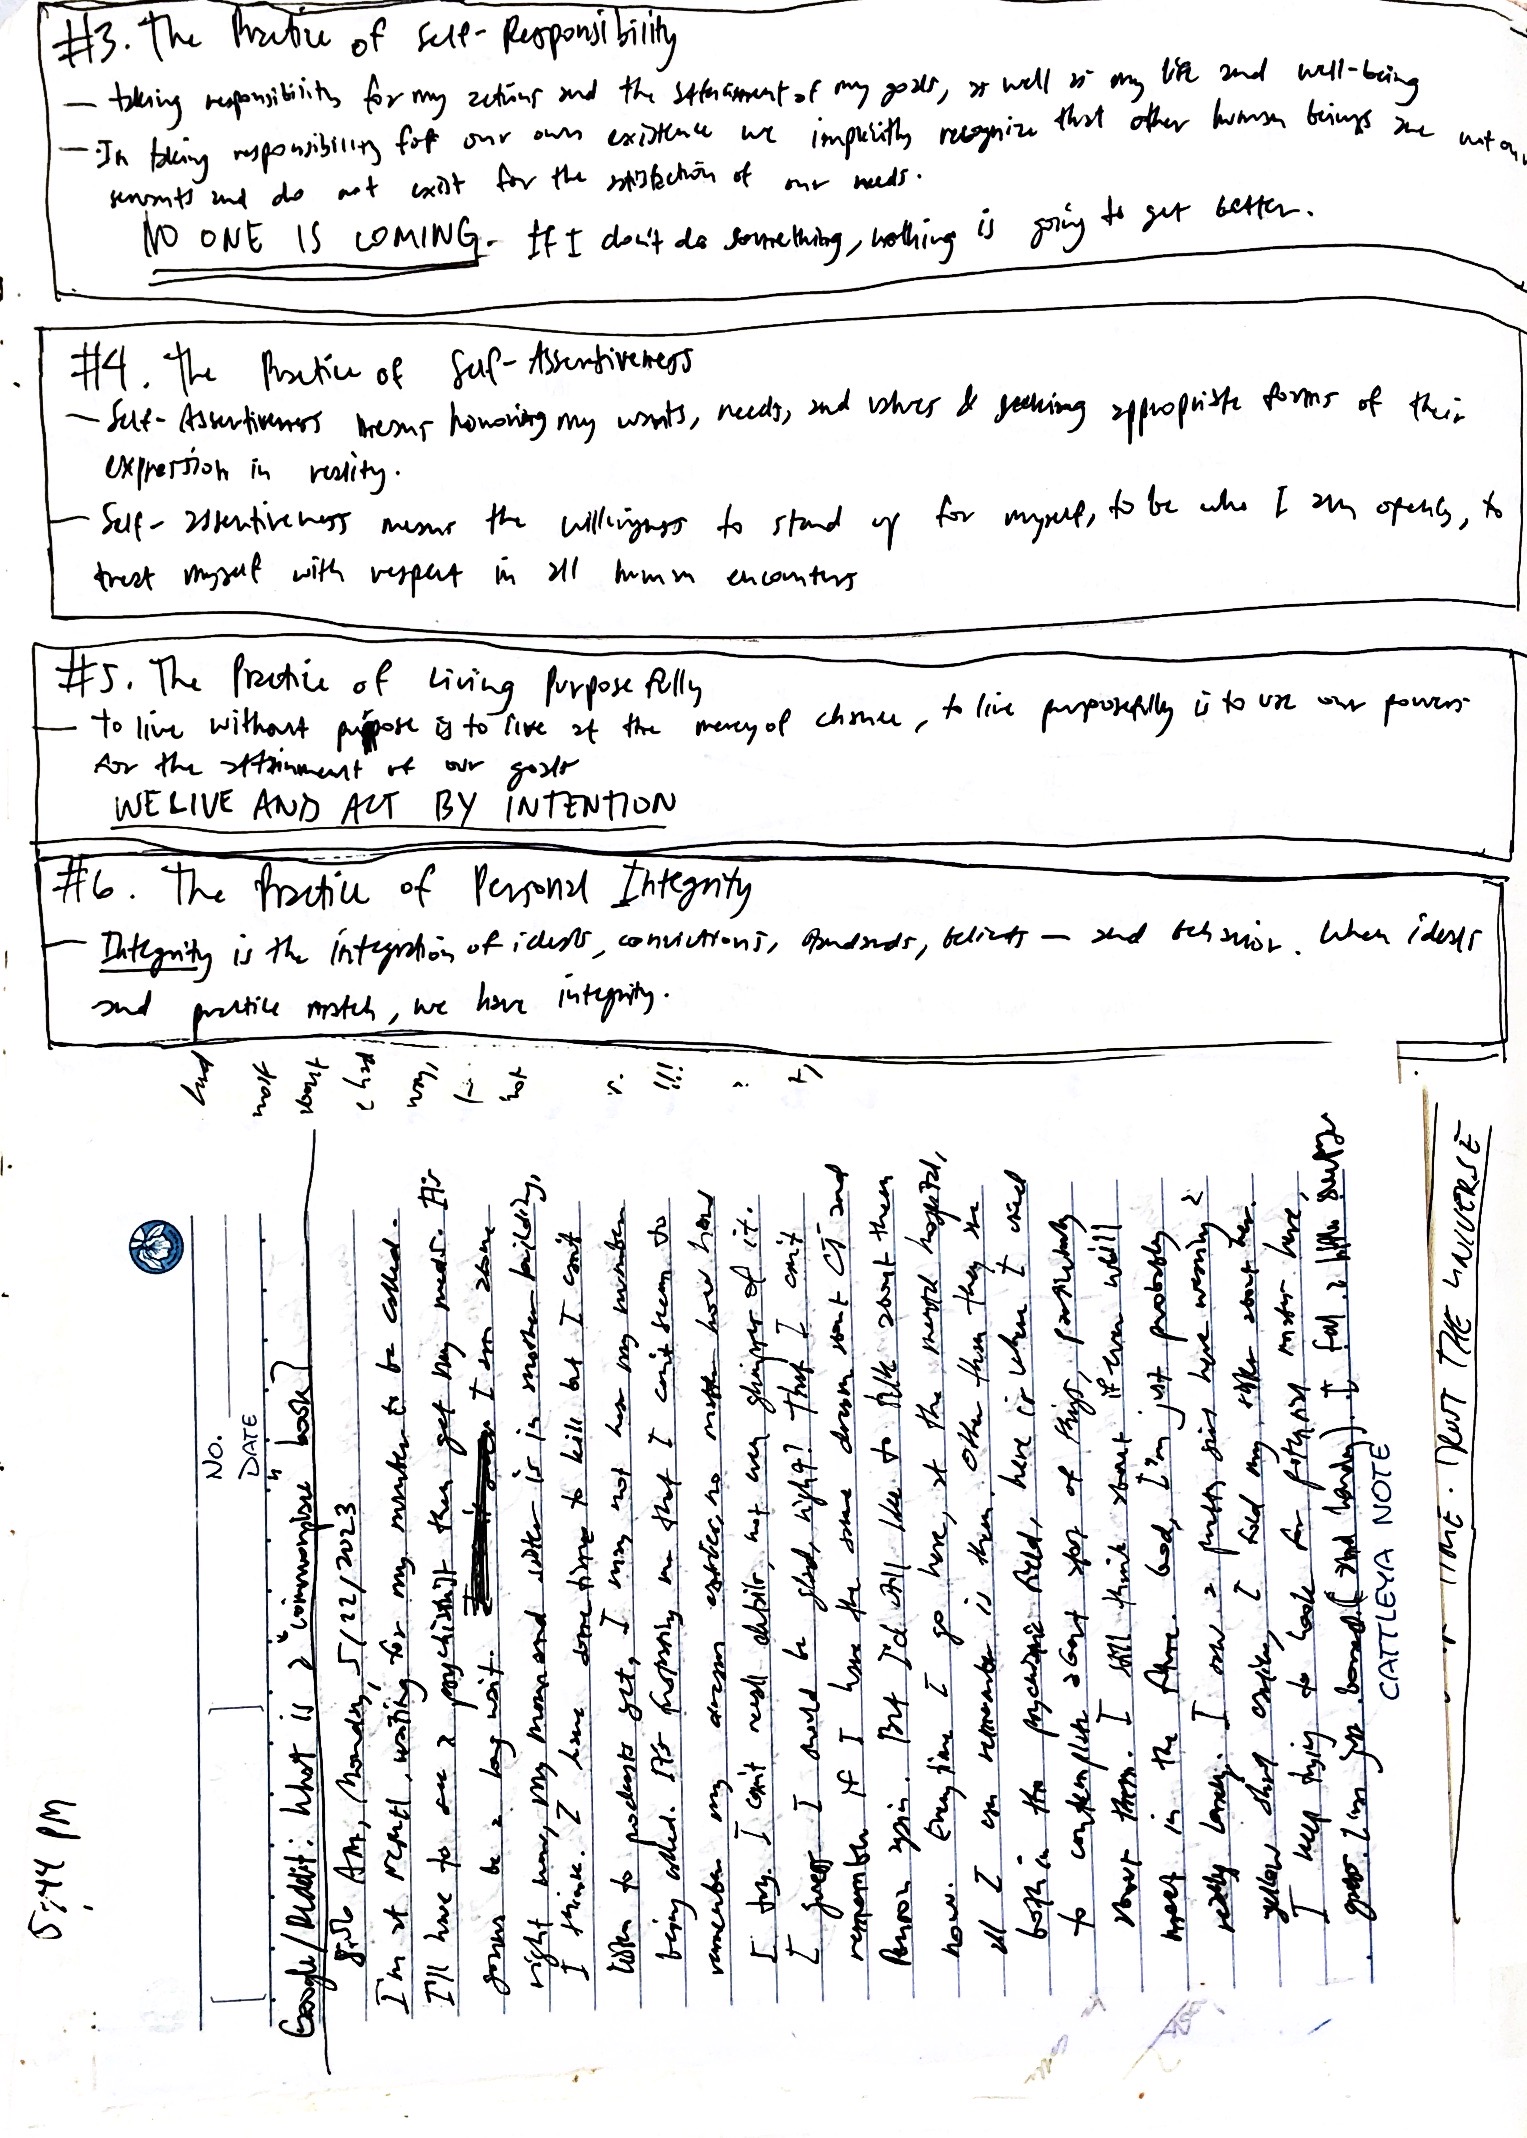 #3. The Practice of Self-Responsibility
— taking responsibility for my actions and the attainment of my goals, as well as my life and well-being
— In taking responsibility for our own existence we implicitly recognize that other human beings are not our
servants and do not exist for the satisfaction of our needs.
NO ONE IS COMING. If I don't do something, nothing is going to get better.
#4. The Practice of Self-Assertiveness
— Self-Assertiveness means honoring my wants, needs, and values & seeking appropriate forms of their
expression in reality.
— Self-assertiveness means the willingness to stand up for myself, to be who I am openly, to
treat myself with respect in all human encounters
#5. The Practice of Living Purposefully
— to live without purpose is to live at the mercy of chance, to live purposefully is to use our powers
for the attainment of our goals
WE LIVE AND ACT BY INTENTION
#6. The Practice of Personal Integrity
— Integrity is the integration of ideals, convictions, standards, beliefs — and behavior. When ideals
and practice match, we have integrity.
had
most
about
had
way,
not
!!!
5:44 PM
NO.
DATE
Google/Reddit: What is a "commonplace book"?
AM, Monday, 5/22/2023
I'm at waiting for my number to be called.
I'll have to see a psychiatrist then get my meds. It's
gonna be a long wait. I am alone
right now, my mom and sister is in another building,
I think. I have some time to kill but I can't
listen to podcasts yet, I may not hear my number
being called. It's frustrating me that I can't seem to
remember my dream no matter how hard
I try. I can't recall not even glimpses of it.
I guess I should be glad, right? That I can't
remember if I have the same dream about CJ and
again. But I'd still like to talk about them
now. Everytime I go here, at the mental hospital,
all I can remember is them. Other than they are
both in the field, here is where I used
to contemplate about a lot of things, particularly
about them. I still think about if ever we'll
meet in the future. I'm just probably
really lonely. I saw a pretty girl here wearing a
yellow shirt earlier, I told my sister about her.
I keep trying to look for potential here,
I feel a little
CATTLEYA NOTE
TIME. DENT THE UNIVERSE